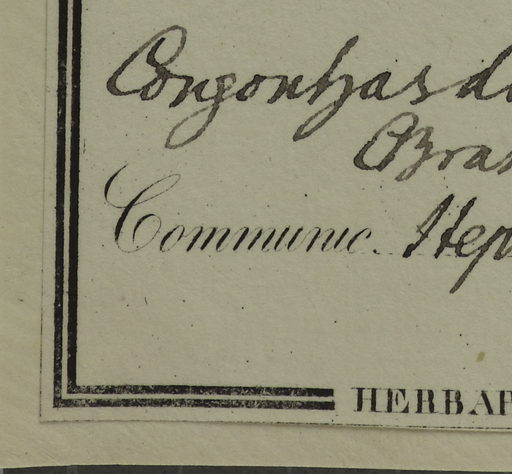 Congonhas d
Bras
Communic. Step
HERBAR